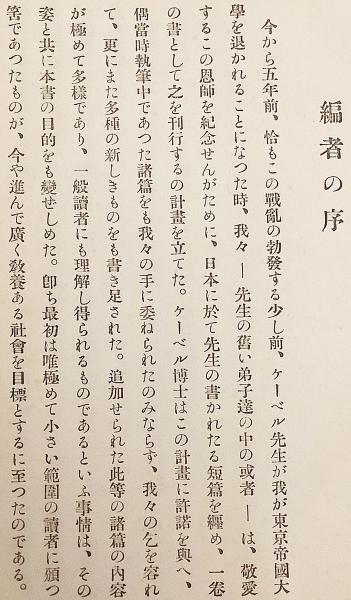 編者の序
今から五年前、恰もこの戰亂の勃發する少し前、ケーベル先生が我が東京帝國大
學を退かれることになつた時、我々―先生の舊い弟子達の中の或者―は、敬愛
するこの恩師を紀念せんがために、日本に於て先生の書かれたる短篇を纒め、一卷
の書として之を刊行するの計畫を立てた。ケーベル博士はこの計畫に許諾を與へ、
偶當時執筆中であつた諸篇をも我々の手に委ねられたのみならず、我々の乞を容れ
て、更にまた多種の新しきものをも書き足された。追加せられた此等の諸篇の內容
が極めて多樣であり、一般讀者にも理解し得られるものであるといふ事情は、その
姿と共に本書の目的をも變ぜしめた。卽ち最初は唯極めて小さい範圍の讀者に頒つ
筈であつたものが、今や進んで廣く敎養ある社會を目標とするに至つたのである。